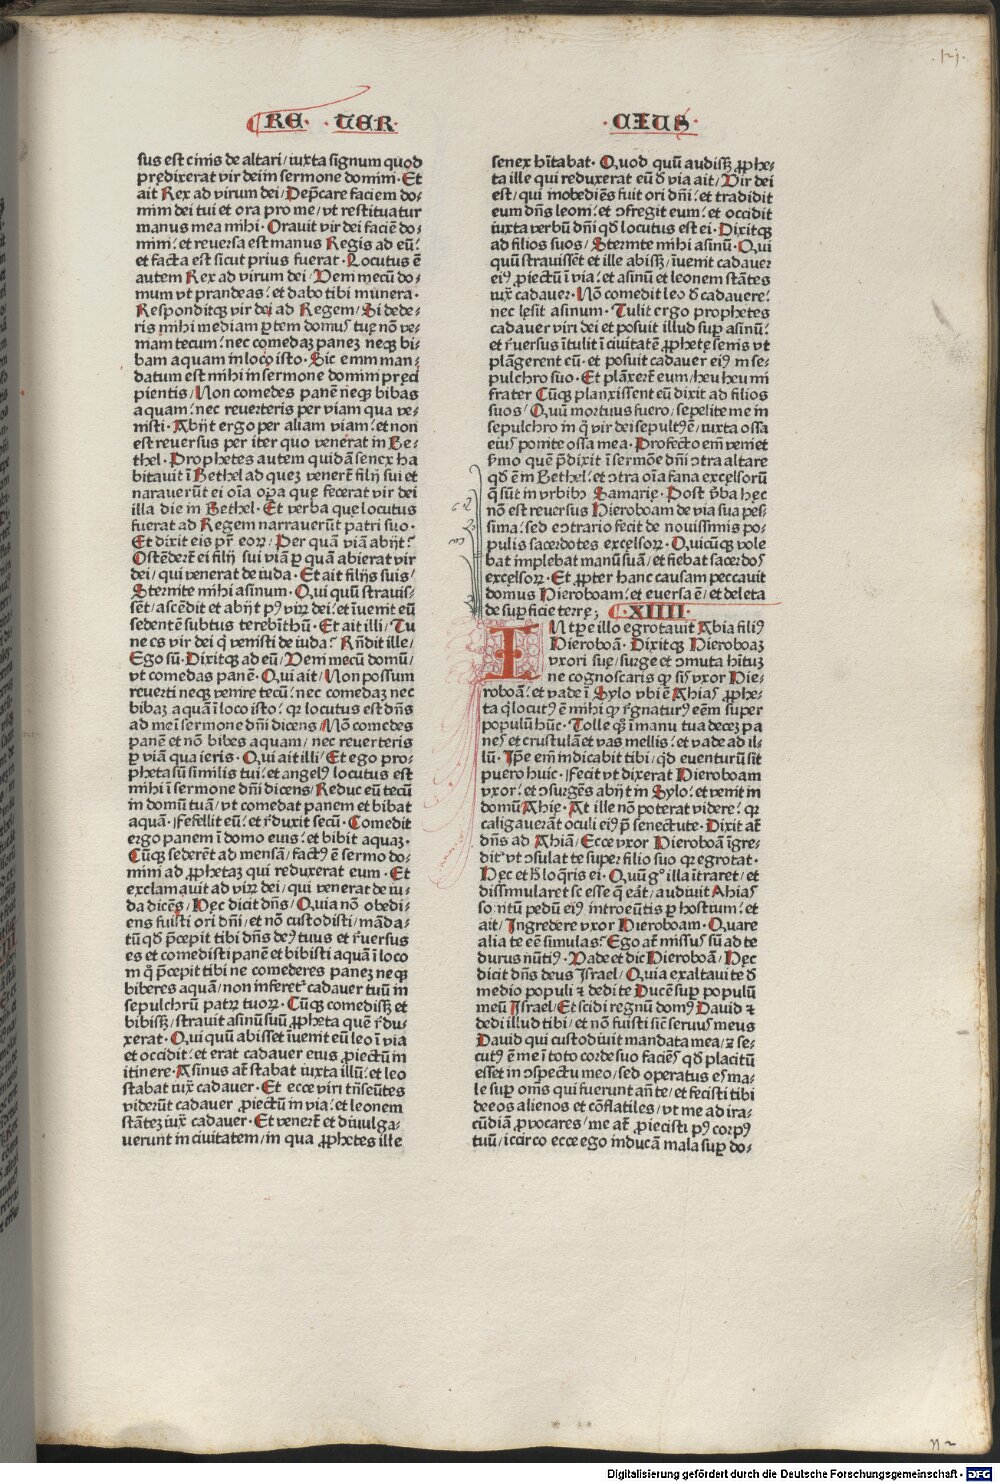 RE · TER
CIVS
sus est cinis de altari / iuxta signum quod
prędixerat vir dei in sermone domini · Et
ait Rex ad virum dei / Dep̄care faciem do⸗
mini dei tui et ora pro me / vt restituatur
manus mea mihi · Orauit vir dei faciē do⸗
mini : et reuersa est manus Regis ad eū :
et facta est sicut prius fuerat · Locutus ē
autem Rex ad virum dei / Veni mecū do⸗
mum vt prandeas : et dabo tibi munera ·
Responditqꝫ vir dei ad Regem / Si dede⸗
ris mihi mediam ꝑtem domus tuę nō ve⸗
niam tecum : nec comedaꝫ paneꝫ neqꝫ bi⸗
bam aquam in loco isto · Sic enim man⸗
datum est mihi in sermone domini pręci
pientis / Non comedes panē neqꝫ bibas
aquam : nec reuerteris per viam qua ve⸗
nisti · Abijt ergo per aliam viam : et non
est reuersus per iter quo venerat in Be⸗
thel · Prophetes autem quidā senex ha
bitauit ī Bethel ad queꝫ venerēt filij sui et
narauerūt ei oīa oꝑa que fecerat vir dei
illa die in Bethel · Et verba quę locutus
fuerat ad Regem narrauerūt patri suo ·
Et dixit eis pr̄ eoꝝ / Per quā viā abijt ?
Ostēderēt ei filij sui viā ꝑ quā abierat vir
dei / qui venerat de iuda · Et ait filijs suis /
Sternite mihi asinum · Qui quū strauis⸗
sēt / ascēdit et abijt pꝰ virꝫ dei : et īuenit eū
sedentē subtus terebīthū · Et ait illi / Tu
ne es vir dei q̇ venisti de iuda ? Rn̄dit ille /
Ego sū · Dixitqꝫ ad eū / Veni mecū domū /
vt comedas panē · Qui ait / Non possum
reuerti neqꝫ venire tecū : nec comedaꝫ nec
bibaꝫ aquā ī loco isto : qꝛ locutus est dn̄s
ad me ī sermone dn̄i dicens / Nō comedes
panē et nō bibes aquam / nec reuerteris
ꝑ viā qua ieris · Qui ait illi / Et ego pro⸗
pheta sū similis tui : et angelꝰ locutus est
mihi ī sermone dn̄i dicens / Reduc eū tecū
in domū tuā / vt comedat panem et bibat
aquā · Fefellit eū : et r̄duxit secū · Comedit
ergo panem ī domo eius : et bibit aquaꝫ ·
Cūqꝫ sederēt ad mensā / factꝰ ē sermo do⸗
mini ad ꝓphetaꝫ qui reduxerat eum · Et
exclamauit ad virꝫ dei / qui venerat de iu⸗
da dicēs / Hęc dicit dn̄s / Quia nō obedi⸗
ens fuisti ori dn̄i / et nō custodisti / māda⸗
tū qđ p̄cepit tibi dn̄s deꝰ tuus et r̄uersus
es et comedisti panē et bibisti aquā ī loco
in q̇ p̄cepit tibi ne comederes paneꝫ neqꝫ
biberes aquā / non inferet᷑ cadauer tuū in
sepulchrū patrꝫ tuoꝝ · Cūqꝫ comedissꝫ et
bibissꝫ / strauit asinū suū ꝓpheta quē r̄du⸗
xerat · Qui quū abisset īuenit eū leo ī via
et occidit : et erat cadauer eius ꝓiectū in
itinere · Asinus at̄ stabat iuxta illū : et leo
stabat iuꝫ cadauer · Et ecce viri trn̄seūtes
viderūt cadauer ꝓiectū in via : et leonem
stāteꝫ iuꝫ cadauer · Et venerēt et diuulga⸗
uerunt in ciuitatem / in qua ꝓphetes ille
senex hītabat · Quod quū audissꝫ ꝓphe⸗
ta ille qui reduxerat eū đ via ait / Vir dei
est / qui inobediēs fuit ori dn̄i : et tradidit
eum dn̄s leoni : et ꝯfregit eum : et occidit
iuxta verbū dn̄i qđ locutus est ei · Dixitqꝫ
ad filios suos / Sternite mihi asinū · Qui
quū strauissēt et ille abissꝫ / īuenit cadauer
eiꝰ ꝓiectū ī via : et asinū et leonem stātes
iuꝫ cadauer · Nō comedit leo đ cadauere :
nec lęsit asinum · Tulit ergo prophetes
cadauer viri dei et posuit illud suꝑ asinū :
et r̄uersus ītulit ī ciuitatē ꝓphetę senis vt
plāgerent eū · et posuit cadauer eiꝰ in se⸗
pulchro suo · Et plāxerēt eum / heu heu mi
frater Cūqꝫ planxissent eū dixit ad filios
suos / Quū mortuus fuero / sepelite me in
sepulchro in q̇ vir dei sepultꝰ ē / iuxta ossa
eius ponite ossa mea · Profecto em̄ veniet
s̄mo quē p̄dixit ī sermōe dn̄i ꝯtra altare
qđ ē in Bethel : et ꝯtra oīa fana excęlsorū
q̄ sūt in vrbibꝫ Samarię · Post v̄ba hęc
nō est reuersus Hieroboam de via sua pes⸗
sima : sed ecōtrario fecit de nouissimis po⸗
pulis sacerdotes excęlsoꝝ · Quicūqꝫ vole
bat implebat manū suā / et fiebat sacerdos
excęlsoꝝ · Et ꝓpter hanc causam peccauit
domus Hieroboam : et euersa ē / et deleta
de suꝑficie terrę ; XIIII ·
IN tꝑe illo egrotauit Abia filiꝰ
Hieroboā · Dixitqꝫ Hieroboaꝫ
vxori suę / surge et ꝯmuta hītuꝫ
ne cognoscaris qꝫ sis vxor Hie⸗
roboā : et vade ī Sylo vbi ē Ahias ꝓphe⸗
ta q̇ locutꝰ ē mihi qꝫ r̄gnaturꝰ eēm super
populū hūc · Tolle qꝫ ī manu tua deceꝫ pa
nes et crustulā et vas mellis : et vade ad il⸗
lū · Ip̄e em̄ indicabit tibi / qđ euenturū sit
puero huic · Fecit vt dixerat Hieroboam
vxor : et ꝯsurgēs abijt in Sylo : et venit in
domū Ahię · At ille nō poterat videre : qꝛ
caligauerāt oculi eiꝰ p̄ senectute · Dixit at̄
dn̄s ad Ahiā / Ecce vxor Hieroboā īgre⸗
dit᷑ vt ꝯsulat te super filio suo qꝛ egrotat ·
Hęc et h̄ loq̄ris ei · Quū gͦ illa ītraret / et
dissimularet se esse q̄ eāt / audiuit Ahias
sonitū pedū eiꝰ introeūtis ꝑ hostium : et
ait / Ingredere vxor Hieroboam · Quare
alia te eē simulas ? Ego at̄ missus sū ad te
durus nūtiꝰ · Vade et dic Hieroboā / Hęc
dicit dn̄s deus Israel / Quia exaltaui te đ
medio populi ⁊ dedi te Ducē suꝑ populū
meū Israel / Et scidi regnū domꝰ Dauid ⁊
dedi illud tibi / et nō fuisti sic̄ seruus meus
Dauid qui custodiuit mandata mea / ⁊ se⸗
cutꝰ ē me ī toto corde suo faciēs qđ placitū
esset in ꝯspectu meo / sed operatus es ma⸗
le suꝑ om̄s qui fuerunt an̄ te / et fecisti tibi
deeos alienos et cōflatiles / vt me ad ira⸗
cūdiā ꝓuocares / me at̄ ꝓiecisti pꝰ corpꝰ
tuū / iccirco ecce ego inducā mala suꝑ do⸗
Digitalisierung gefördert durch die Deutsche Forschungsgemeinschaft · DFG